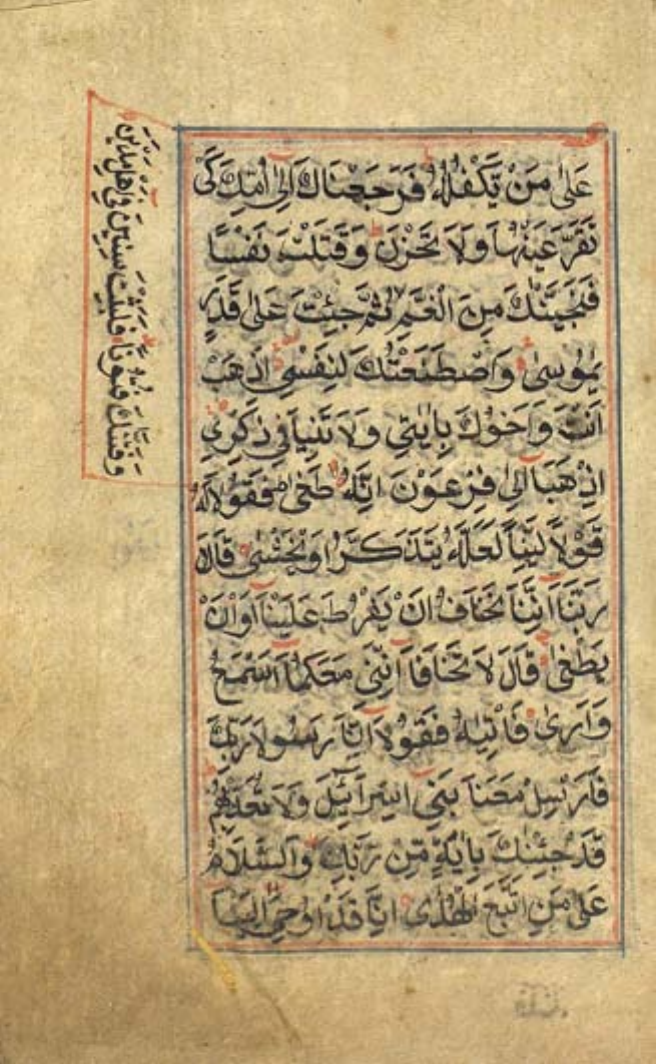 عَلٰى مَنْ يَّكْفُلُهٗ فَرَجَعْنَاكَ اِلٰى اُمِّكَ كَىْ
تَقَرَّ عَيْنُهَا وَلَا تَحْزَنَ وَقَتَلْتَ نَفْسًا
فَنَجَّيْنٰكَ مِنَ الْغَمِّ ثُمَّ جِئْتَ عَلٰى قَدَرٍ
يّٰمُوسٰى وَاصْطَنَعْتُكَ لِنَفْسِى اِذْهَبْ
اَنْتَ وَاَخُوْكَ بِاٰيٰتِى وَلَا تَنِيَا فِى ذِكْرِى
اِذْهَبَا اِلٰى فِرْعَوْنَ اِنَّهٗ طَغٰى فَقُوْلَا لَهٗ
قَوْلًا لَّيِّنًا لَّعَلَّهٗ يَتَذَكَّرُ اَوْ يَخْشٰى قَالَا
رَبَّنَا اِنَّنَا نَخَافُ اَنْ يَّفْرُطَ عَلَيْنَا اَوْ اَنْ
يَّطْغٰى قَالَ لَا تَخَافَا اِنَّنِى مَعَكُمَا اَسْمَعُ
وَاَرٰى فَاْتِيٰهُ فَقُوْلَا اِنَّا رَسُوْلَا رَبِّكَ
فَاَرْسِلْ مَعَنَا بَنِى اِسْرَآئِيْلَ وَلَا تُعَذِّبْهُمْ
قَدْ جِئْنٰكَ بِاٰيَةٍ مِّنْ رَّبِّكَ وَالسَّلَامُ
عَلٰى مَنِ اتَّبَعَ الْهُدٰى اِنَّا قَدْ اُوْحِىَ اِلَيْنَا
وَفَتَنّٰكَ فُتُوْنًا فَلَبِثْتَ سِنِيْنَ فِى اَهْلِ مَدْيَنَ